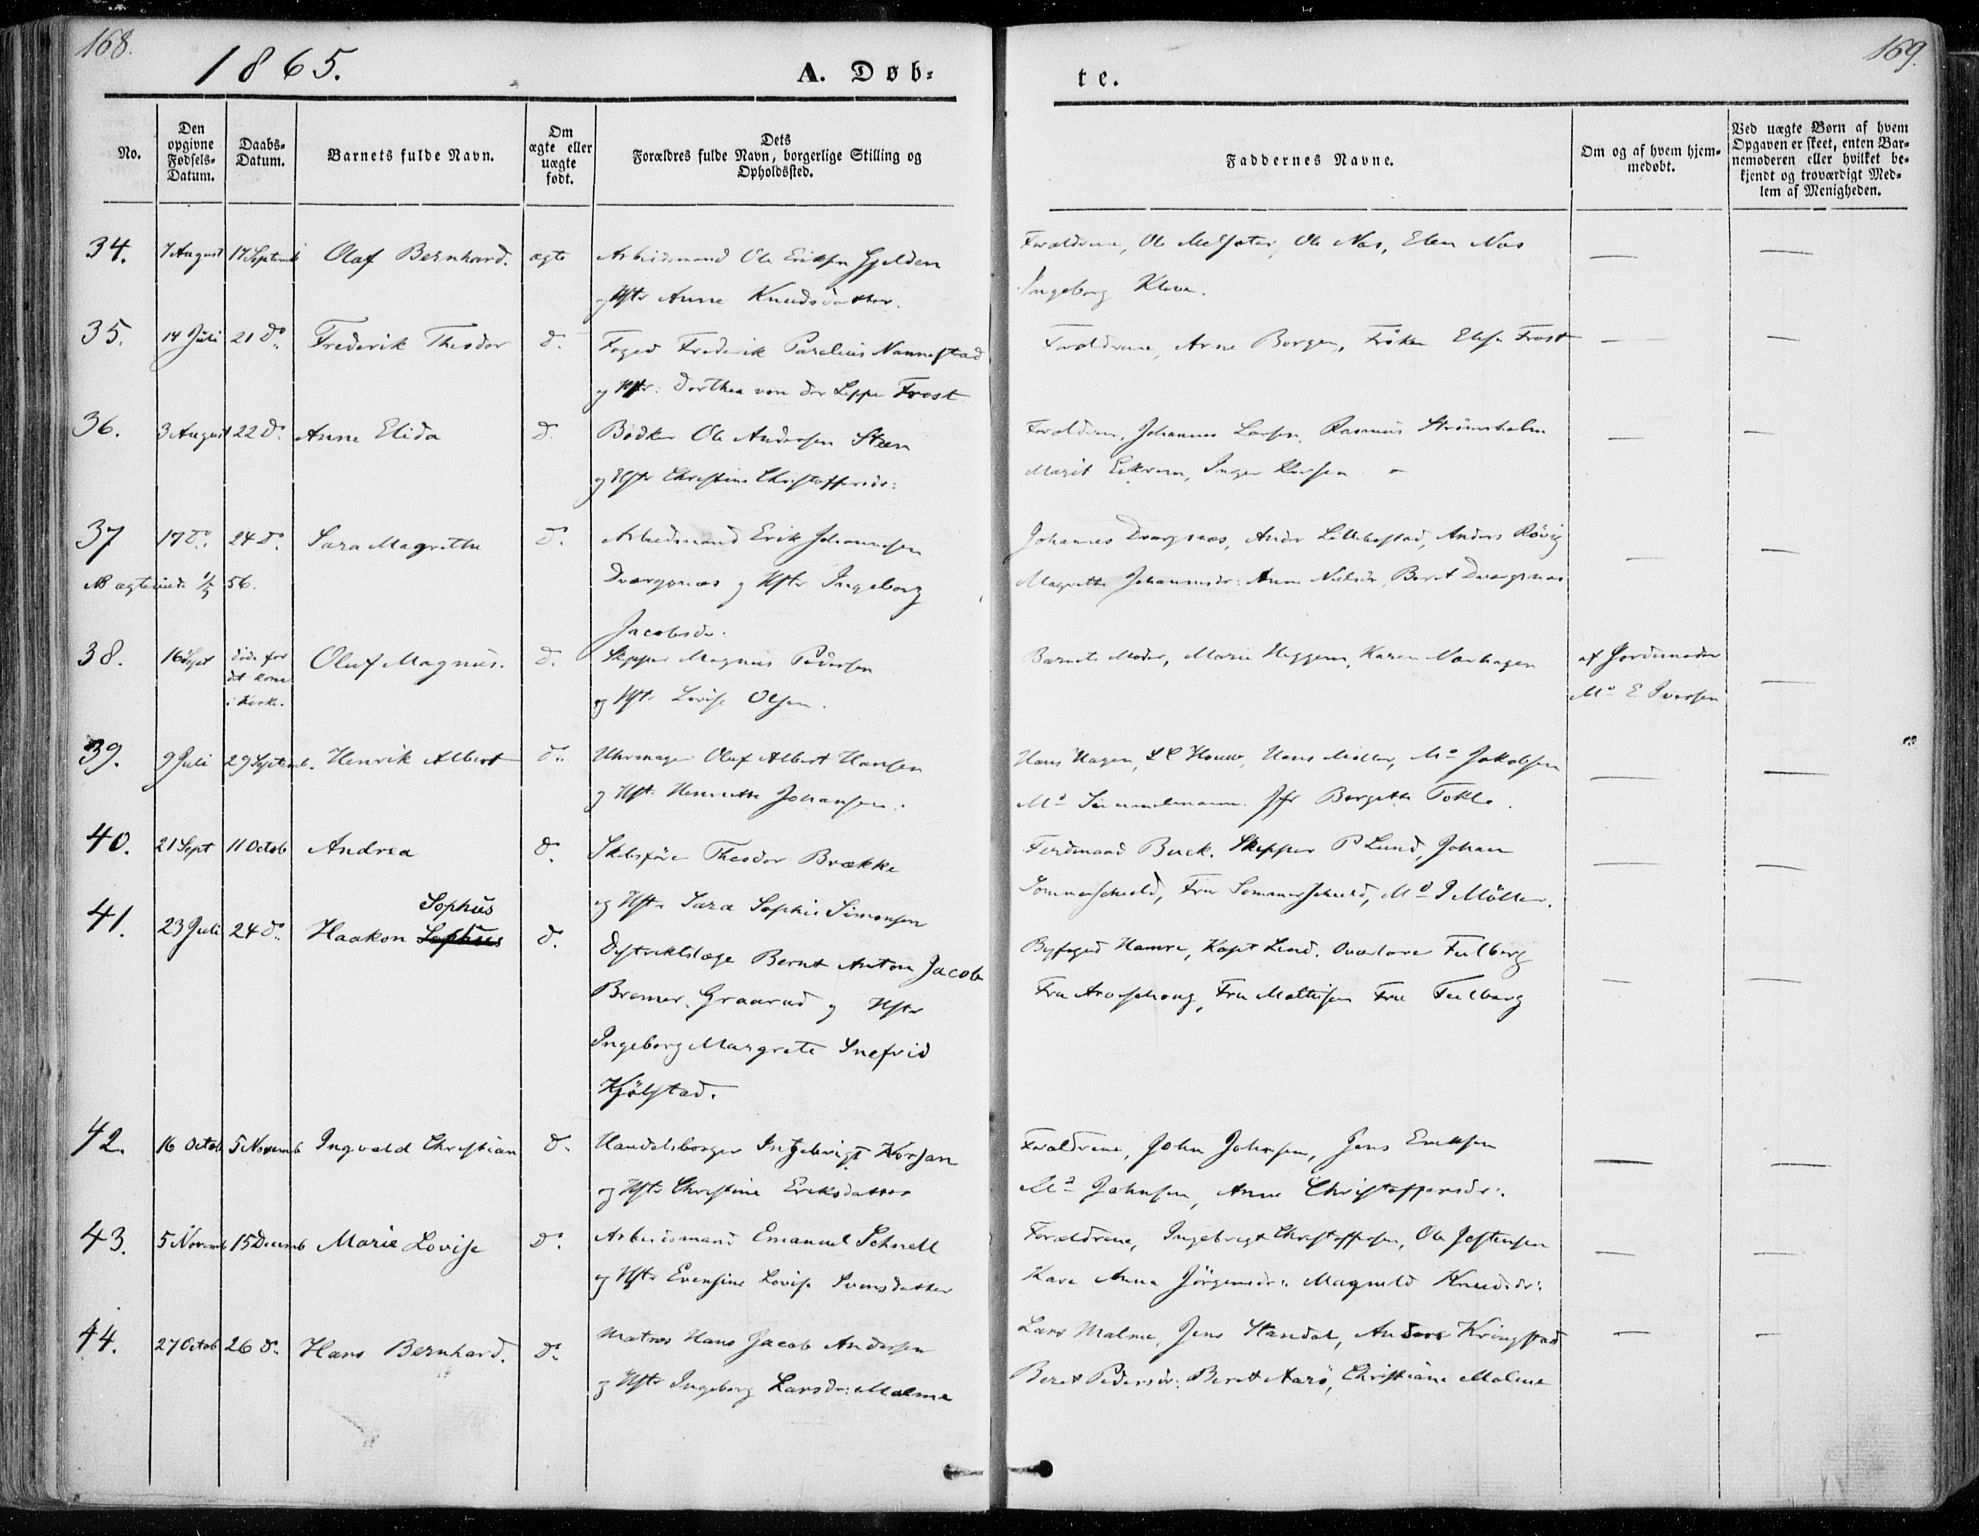 168.
169.
1865.
A. Døb-
te.
No.
Den opgivne Fødsels-Datum.
Daabs-Datum.
Barnets fulde Navn.
Om ægte eller uægte født.
Dets
Forældres fulde Navn, borgerlige Stilling og
Opholdssted.
Faddernes Navne.
Om og af hvem hjem-
medøbt.
Ved uægte Børn af hvem
Opgaven er skeet, enten Bar-
nemoderen eller hvilket be-
kjendt og troværdigt Med-
lem af Menigheden.
34. 7 August 17 Septemb Olaf Bernhard. ægte Arbeidsmand Ole Eriksen Gjelden
og Hstr Anne Knudsdatter.
Forældrene, Ole Melsæter, Ole Næs, Elen Næs
Ingeborg Kleve.
35. 14 Juli 21 do. Frederik Theodor do. Foged Frederik Parelius Nannestad
og Hstr: Dorthea von der Lippe Frost
Forældrene, Arne Borgen, Frøken Elise Frost
36. 3 August 22 do. Anne Elida do. Bødker Ole Andersen Steen
og Hstr Christine Christoffersdr:
Forældrene, Johannes Larsen, Rasmus Strømsholm
Marit Eikrem, Inger Larsen
37 17 do. 24 do. Sara Magrethe do. Arbeidsmand Erik Johannesen
Dvergsnæs og Hstr Ingeborg
Jacobsdr.
NB ægteviede 56.
Johannes Dvergsnæs, Andr Lillebostad, Anders Røvig
Magrethe Johannesdr: Anne Nielsdr, Beret Dvergsnæs
38. 16 Sept døde før
det kom
i Kirke.
Oluf Magnus. do. Skipper Magnus Pedersen
og Hstr Lovise Olsen.
Barnets Moder, Marie Heggem, Karen Norhagen
af Jordemoder
Md E Iversen
39. 9 Juli 29 Septemb. Henrik Albert do. Uhrmager Olaf Albert Hansen
og Hstr Henriette Johansen.
Hans Hagen, Hans Møller, Md Jakobsen
Md Jfr Bergitte Tokle.
40. 21 Sept 11 Octob Andrea do. Skibsfører Theodor Brække
og Hstr Sara Sophie Simonsen
Ferdinand Buck. Skipper P Lund, Johan
Sommerschield, Fru Sommerschield, Md P Møller.
41. 23 Juli 24 do. Haakon Sophus
Sophus
do. Distriktslæge Bernt Anton Jacob
Bremer Graarud og Hstr
Ingeborg Margrete Snefrid
Kjølstad.
Byfoged Hamre, Kapt Lund, Feilberg
Fru Fru Mathisen Fru Feilberg
42. 16 Octob 5 Novemb Ingvald Christian do. Handelsborger Ingebrigt Korsan
og Hstr Christine Eriksdatter
Forældrene, John Johnsen, Jens Eriksen
Md Johnsen, Anne Christoffersdr:.
43. 5 Novemb 15 Decemb Marie Lovise do. Arbeidsmand Emanuel Schnell
og Hstr Evensine Lovise Svensdatter
Forældrene, Ingebrigt Christoffersen, Ole Jostensen
Kare Anna Jørgensdr: Magnild Knudsdr:
44. 27 Octob 26 do. Hans Bernhard. do. Matros Hans Jacob Andersen
og Hstr Ingeborg Larsdr: Malme
Lars Malme, Jens Standal, Anders Kringstad
Beret Pedersdr: Beret Aarø, Christiane Malme